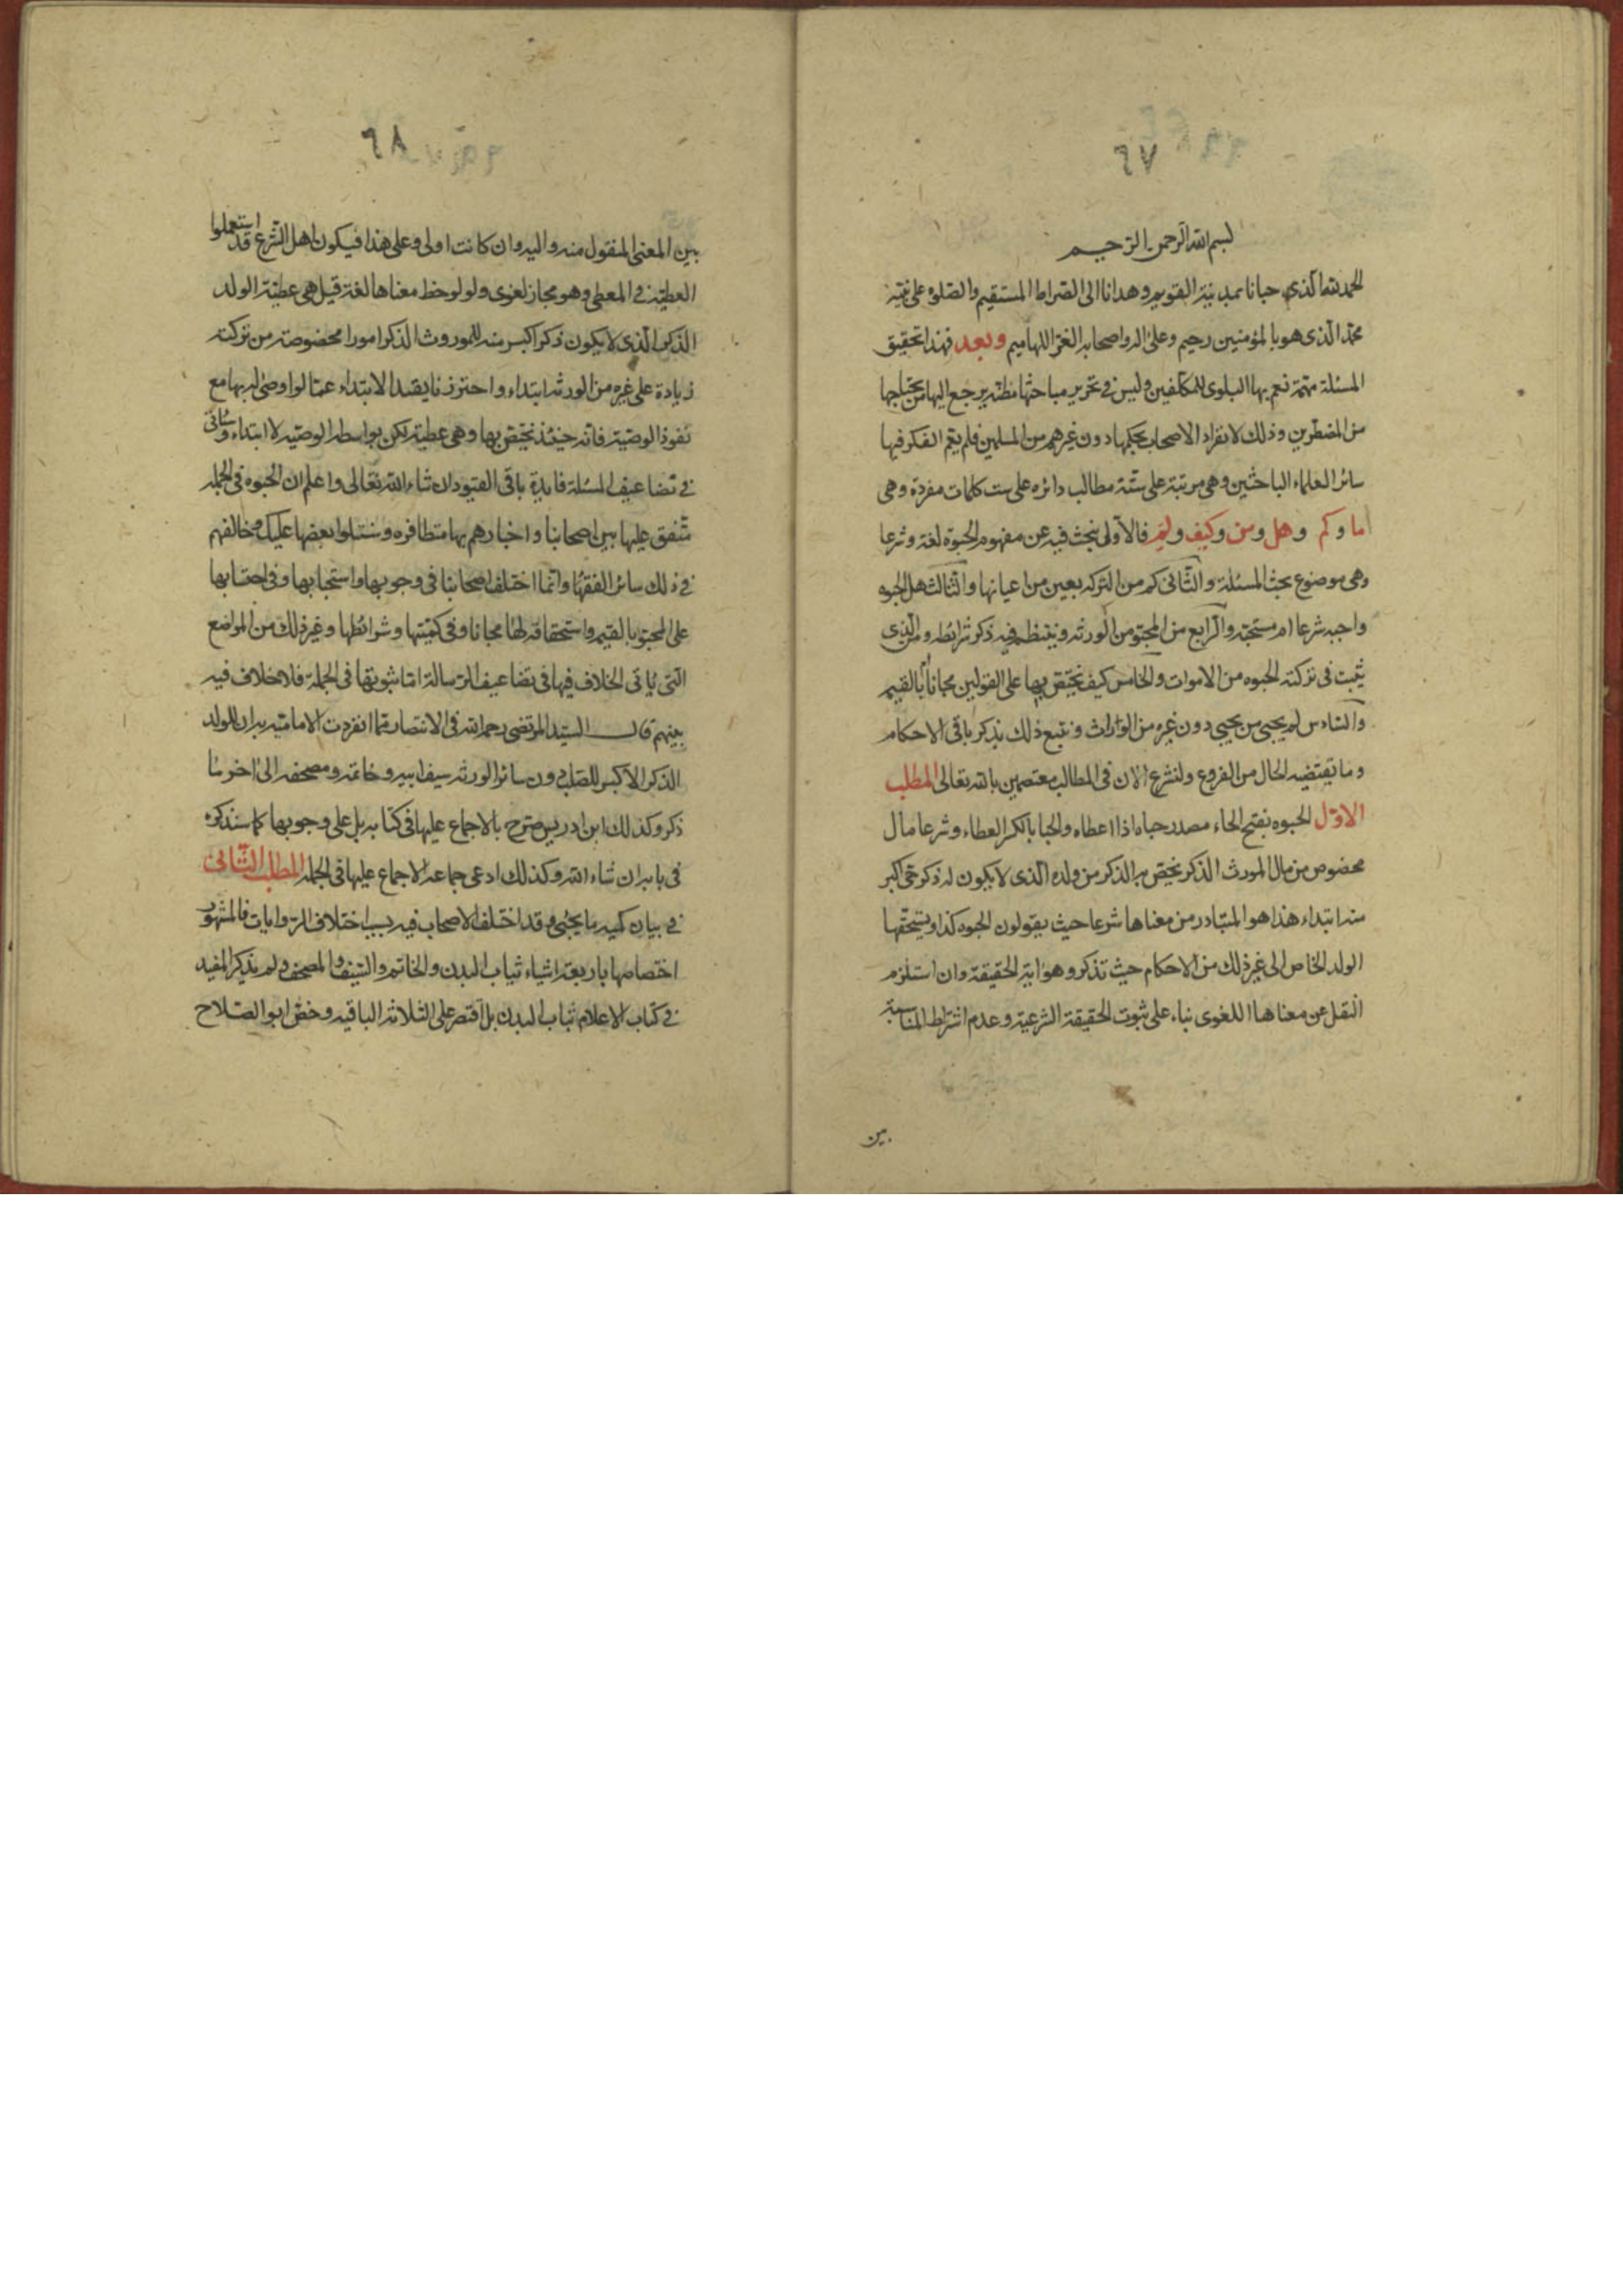 ٦٧
بسم الله الرحمن الرحيم
الحمد لله الذي حبانا بمدينته القويم وهدانا الى الصراط المستقيم والصلوه على نبيه
محمد الذى هو بالمؤمنين رحيم وعلى اله واصحابه الغر اللهاميم وبعد فهذا تحقيق
المسئلة مهمة تعم بها البلوى للمكلفين وليس في تحرير مباحثها مظنه يرجع اليها من يحتاجها
من المضطرين وذلك لانفراد الاصحاب بحكمها دون غيرهم من المسلمين فلم يعم الفكر فيها
سائر العلماء الباحثين وهي مرتبة على ستة مطالب دائره على ست كلمات مفردة وهى
ما وكم وهل ومن وكيف ولم فالاولى نبحث فيه عن مفهوم الحبوة لغة وشرعا
وهى موضوع بحث المسئلة والثانى كم من التركه بعين من اعيانها والثالث هل الحبوه
واجبه شرعا ام مستحبة والرابع من المحبو من الورثه وينتظم فيه ذكر شرائطه ومن الذى
يثبت فى تركته الحبوه من الاموات والخامس كيف يختص بها على القولين مجانا ام بالقيم
والسادس لم يحبى من يحبى دون غيره من الوارث ونتبع ذلك بذكر باقى الاحكام
وما يقتضيه الحال من الفروع ولنشرع الان فى المطالب معتصمين بالله تعالى المطلب
الاول الحبوه بفتح الحاء مصدر حباه اذا اعطاه والحبا بالكسر العطاء وشرعا مال
مخصوص من مال المورث الذكر يختص به الذكر من ولده الذى لا يكون له ذكر حى اكبر
منه ابتداء هذا هو المتبادر من معناها شرعا حيث يقولون الحبوه كذا ويستحقها
الولد الخاص الى غير ذلك من الاحكام حيث تذكر وهو اية الحقيقة وان استلزم
النقل عن معناها اللغوى بناء على ثبوت الحقيقة الشرعية وعدم اشتراط المناسبة
بين
٦٨
بين المعنى المنقول منه واليه وان كانت اولى وعلى هذا فيكون اهل الشرع قد استعملوا
العطية في المعطى وهو مجاز لغوى ولو لوحظ معناها لغة قيل هى عطية الولد
الذكر الذى لا يكون ذكر اكبر منه للموروث الذكر امورا مخصوصة من تركته
زيادة على غيره من الورثه ابتداء واحترزنا بقيد الابتداء عما لو اوصى له بها مع
نفوذ الوصية فانه حينئذ يختص بها وهى عطية لكن بواسطه الوصيه لا ابتداء وسياتى
في تضاعيف المسئلة فايدة باقى القيود ان شاء الله تعالى واعلم ان الحبوه فى الجملة
متفق عليها بين اصحابنا واخبارهم بها متظافره وسنتلوا بعضها عليك ومخالفهم
فى ذلك سائر الفقهاء وانما اختلف اصحابنا فى وجوبها واستحبابها وفى احتسابها
على المحبو بالقيم واستحقاقه لها مجانا وفى كميتها وشرائطها وغير ذلك من المواضع
التى ياتى الخلاف فيها فى تضاعيف الرسالة اما ثبوتها فى الجملة فلا خلاف فيه
بينهم قال السيد المرتضى رحمه الله فى الانتصار مما انفردت الامامية به ان للولد
الذكر الاكبر للصلب دون سائر الورثه سيف ابيه وخاتمه ومصحفه الى اخر ما
ذكر وكذلك ابن ادريس صرح بالاجماع عليها فى كتابه بل على وجوبها كما سنذكره
فى بابه ان شاء الله وكذلك ادعى جماعه الاجماع عليها فى الجملة المطلب الثانى
في بيان كميه ما يحبى وقد اختلف الاصحاب فيه بسبب اختلاف الروايات فالمشهور
اختصاصها باربعة اشياء ثياب البدن والخاتم والسيف والمصحف ولم يذكر المفيد
في كتاب الاعلام ثياب البدن بل اقتصر على الثلاثه الباقيه وخص ابو الصلاح